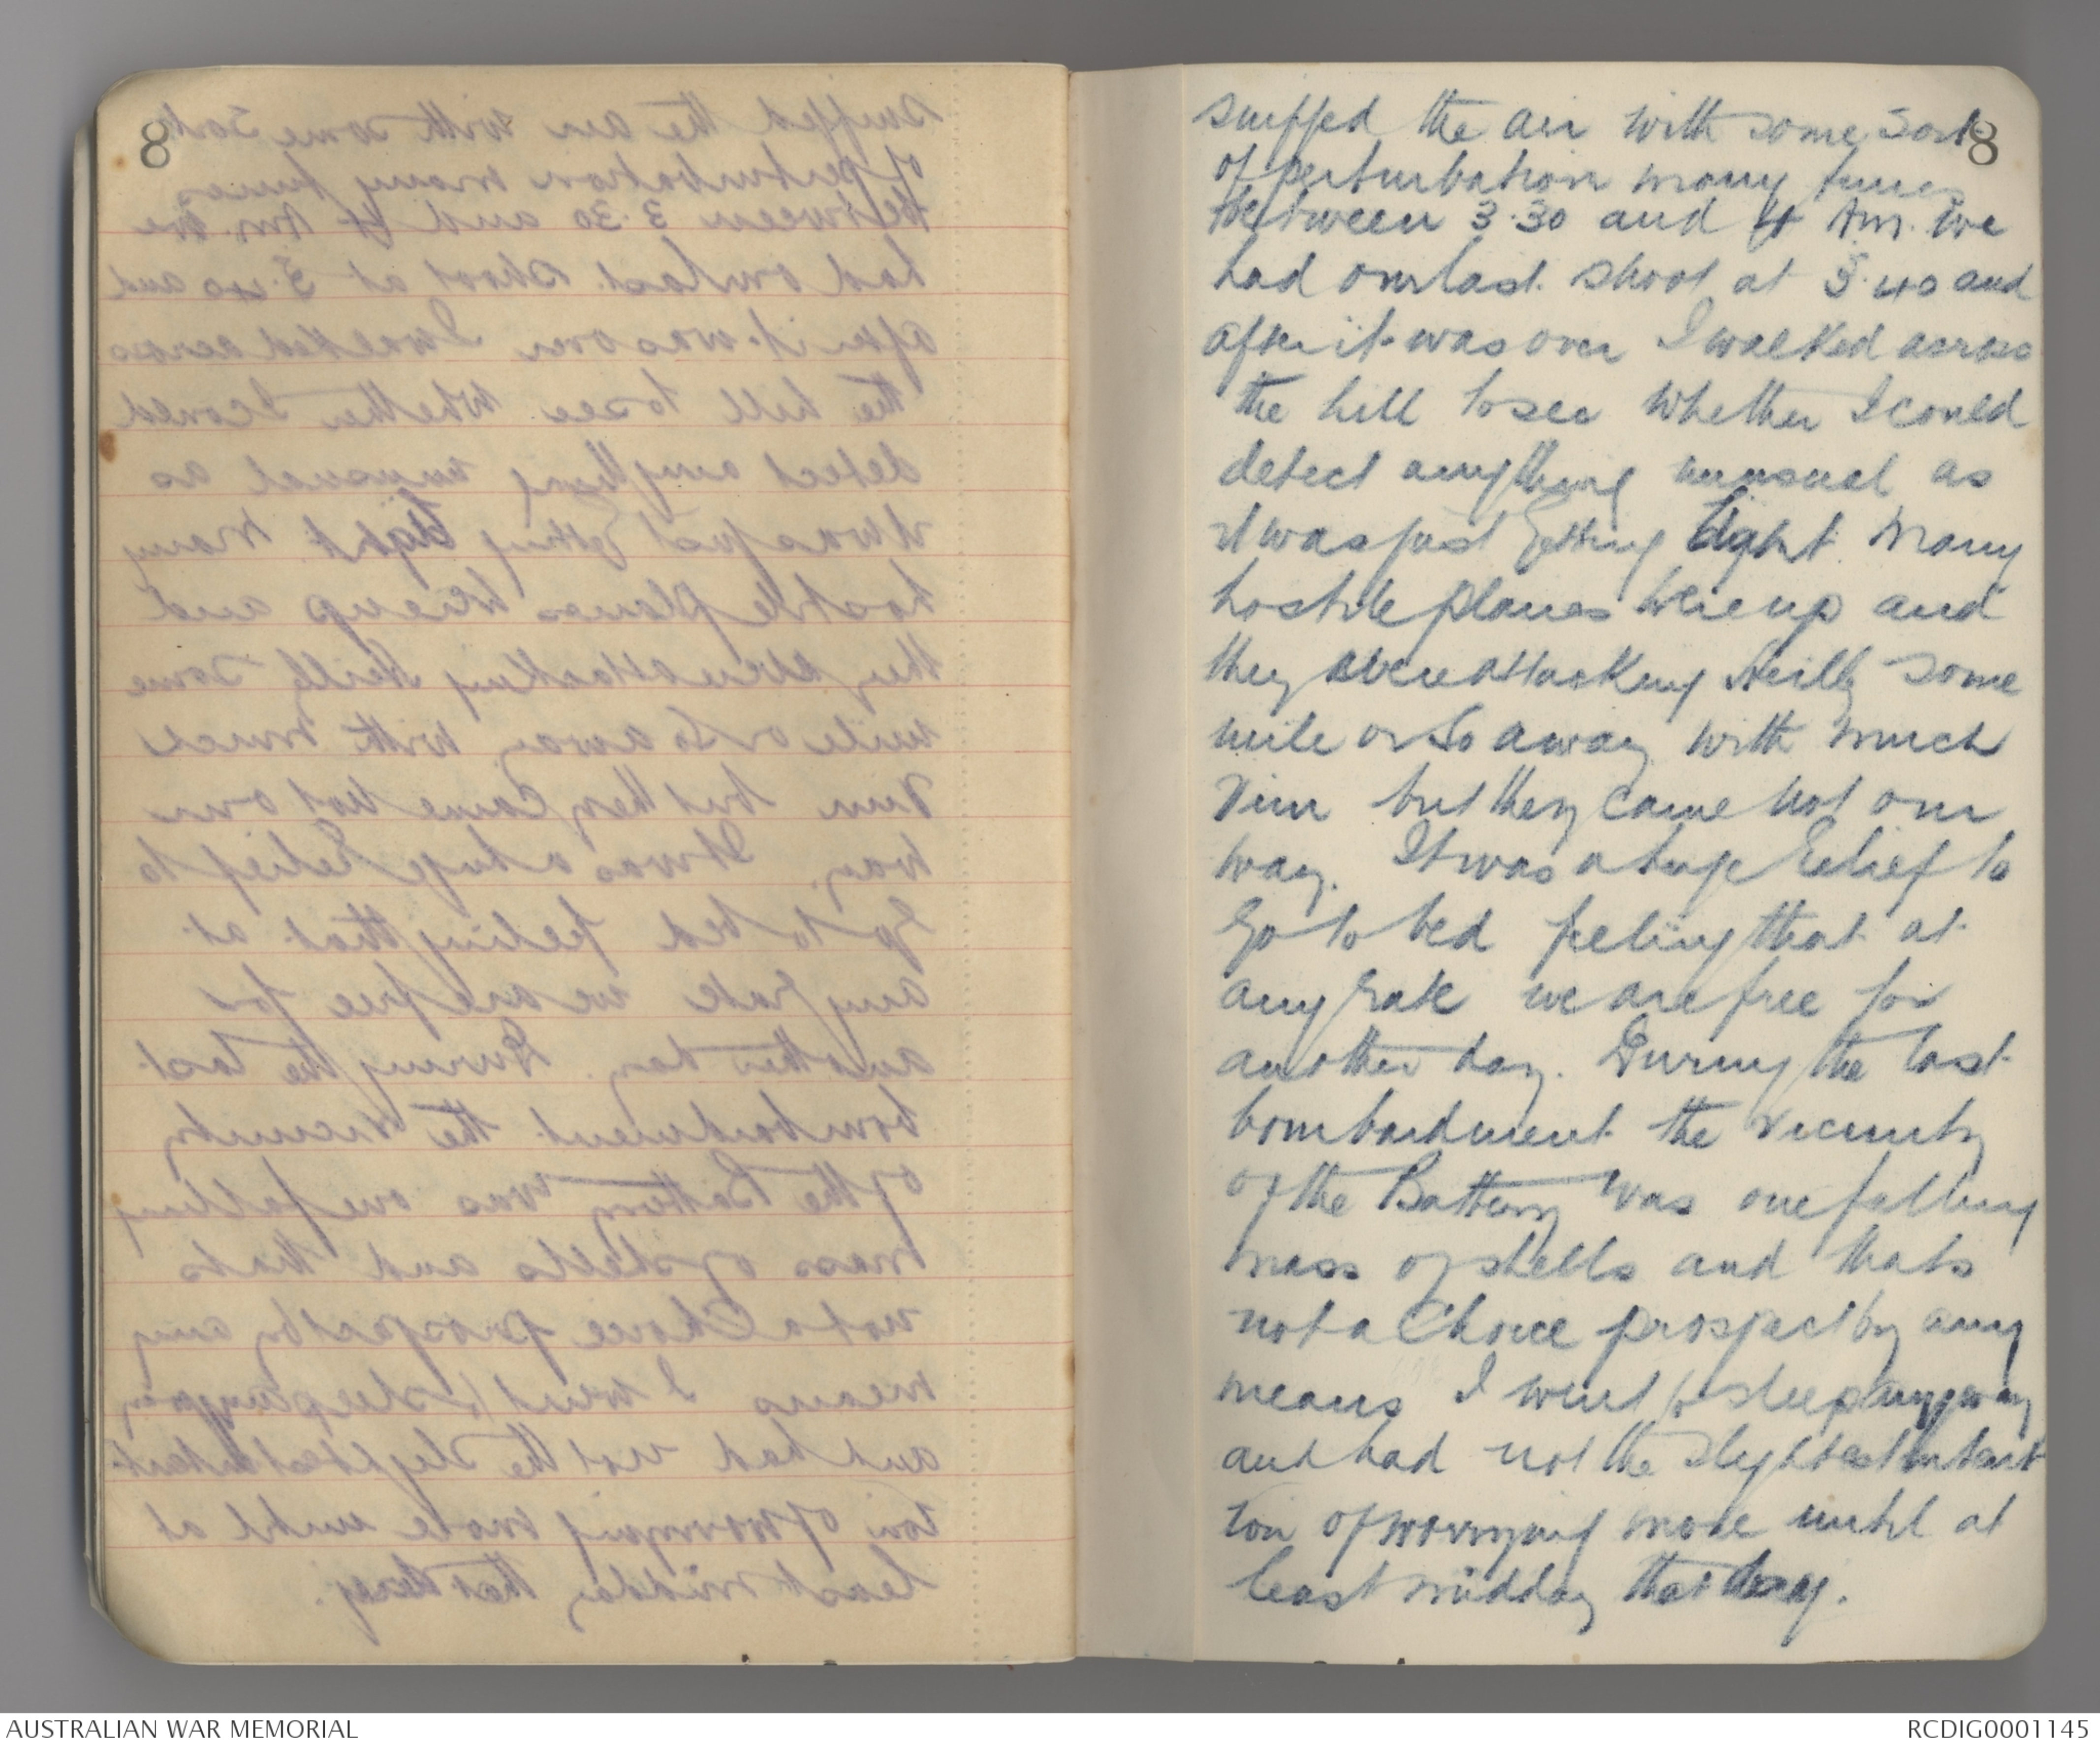 8
sniffed the air with some sort 8
of perturbation many times
between 3.30 and 4 Am. We
had our last shoot at 3.40 and
after it was over I walked across
the hill to see whether I could
detect anything unusual as
it was just getting light. Many
hostile planes were up and
they were attacking Heilly some
mile or so away with much
vim but they came not our
way. It was a huge relief to
go to bed feeling that at
any rate we are free for
another day. During the last
bombardment the vicinity
of the Battery was one falling
mass of shells and thats
not a choice prospect by any
means I went to sleep anyway
and had not the slightest intent
ion of worrying more until at
least midday that day.
AUSTRALIAN WAR MEMORIAL
RCDIG0001145